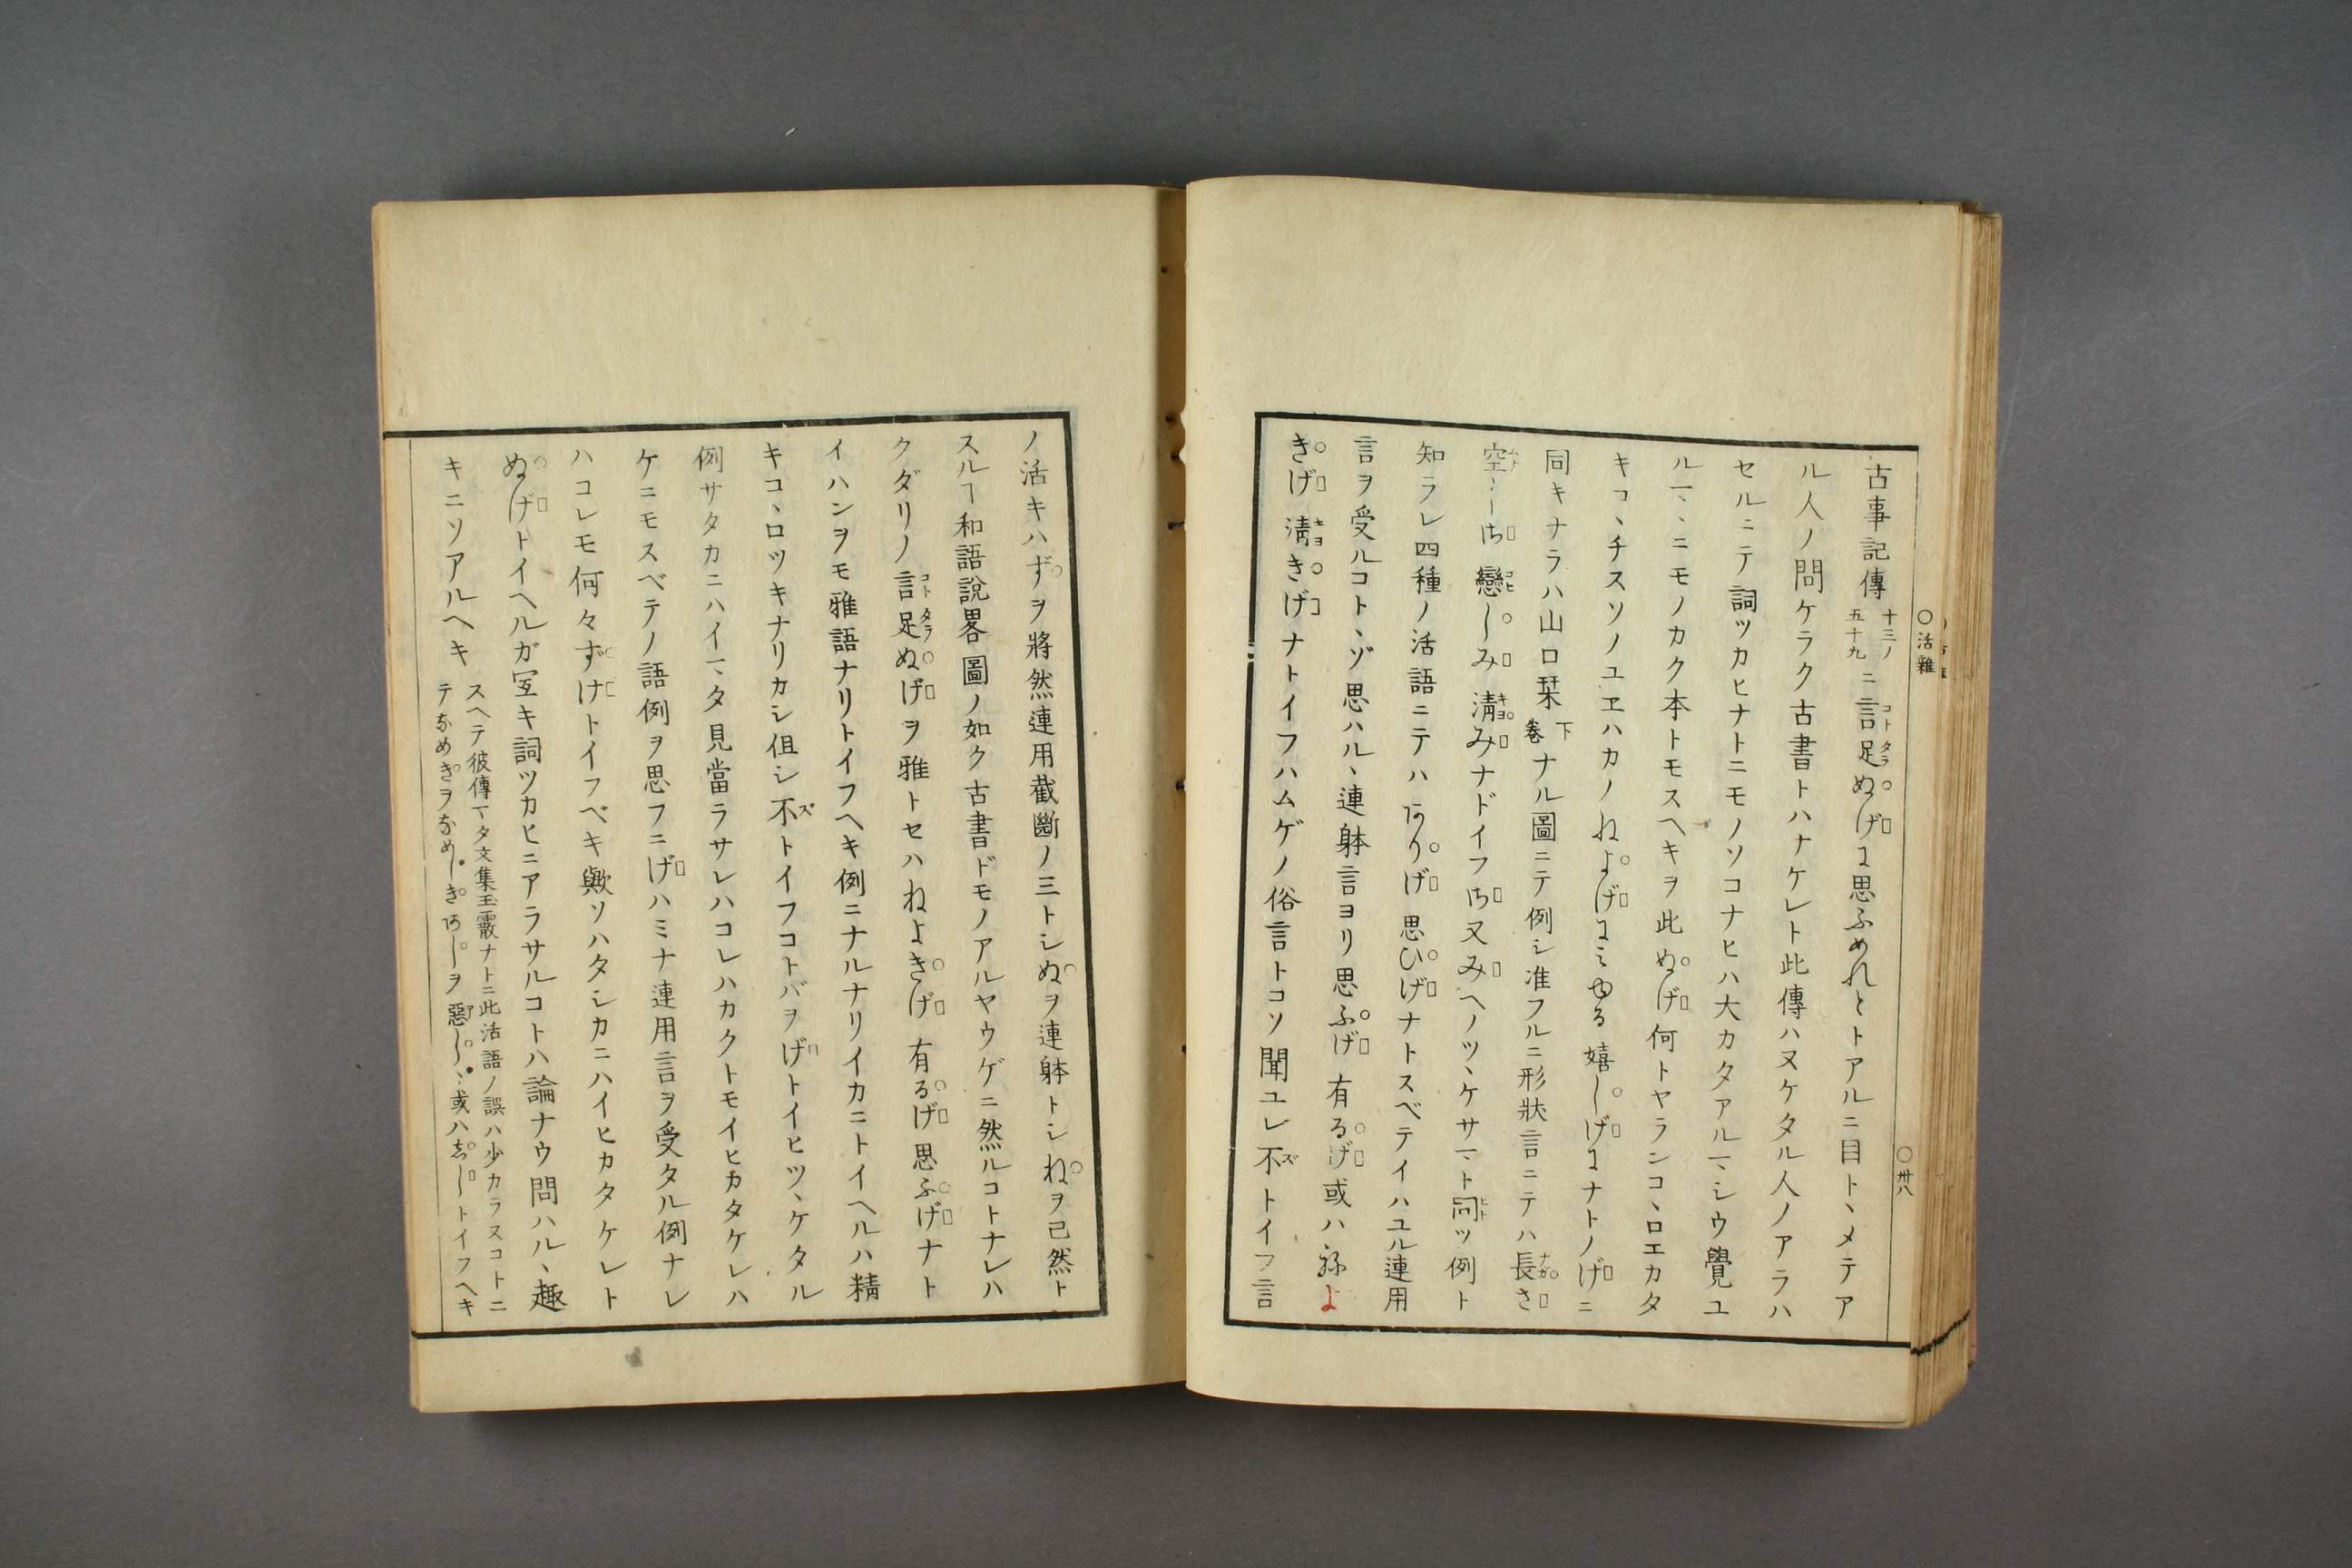 ○活雜
○卅八
古事記傳十三ノ五十九ニ言足ぬげに思ふめれとトアルニ目トヽメテア
ル人ノ問ケラク古書トハナケレト此傳ハヌケタル人ノアラハ
セルニテ詞ツカヒナトニモノソコナヒハ大カタアルマシウ覺ユ
ルマヽニモノカク本トモスヘキヲ此ぬげ何トヤランコヽロエカタ
キコヽチスソノユヱハカノねよげにみゆる嬉しげにナトノげニ
同キナラハ山口栞下卷ナル圖ニテ例シ准フルニ形狀言ニテハ長さ
戀しみ淸みナドイフさ又みヘノツヽケサマト同ツ例ト
知ラレ四種ノ活語ニテハありげ思ひげナトスベテイハユル連用
言ヲ受ルコトヽゾ思ハルヽ連躰言ヨリ思ふげ有るげ或ハねよ
きげ淸きげナトイフハムゲノ俗言トコソ聞ユレ不トイフ言
ノ活キハずヲ將然連用截斷ノ三トシぬヲ連躰トシねヲ已然ト
スルヿ和語說畧圖ノ如ク古書ドモノアルヤウゲニ然ルコトナレハ
クダリノ言足ぬげヲ雅トセハねよきげ有るげ思ふげナト
イハンヲモ雅語ナリトイフヘキ例ニナルナリイカニトイヘルハ精
キコヽロツキナリカシ但シ不トイフコトバヲげトイヒツヽケタル
例サタカニハイマタ見當ラサレハコレハカクトモイヒカタケレハ
ケニモスベテノ語例ヲ思フニげハミナ連用言ヲ受タル例ナレ
ハコレモ何々ずけトイフベキ歟ソハタシカニハイヒカタケレト
ぬげトイヘルガ宜キ詞ツカヒニアラサルコトハ論ナウ問ハルヽ趣
キニソアルヘキ
スヘテ彼傳マタ文集玉霰ナトニ此活語ノ誤ハ少カラスコトニ
テなめきヲなめしきあしヲ惡しヽ或ハあしトイフヘキ